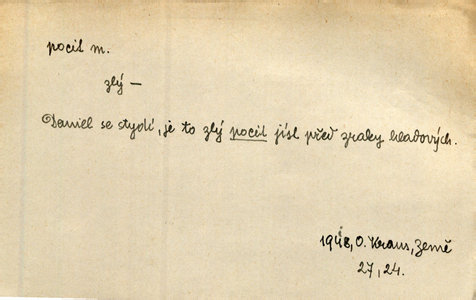 pocit m.
zlý —
Daniel se stydí, je to zlý pocit jíst před zraky hladových.
1948, O. Kraus, Země
27, 24.